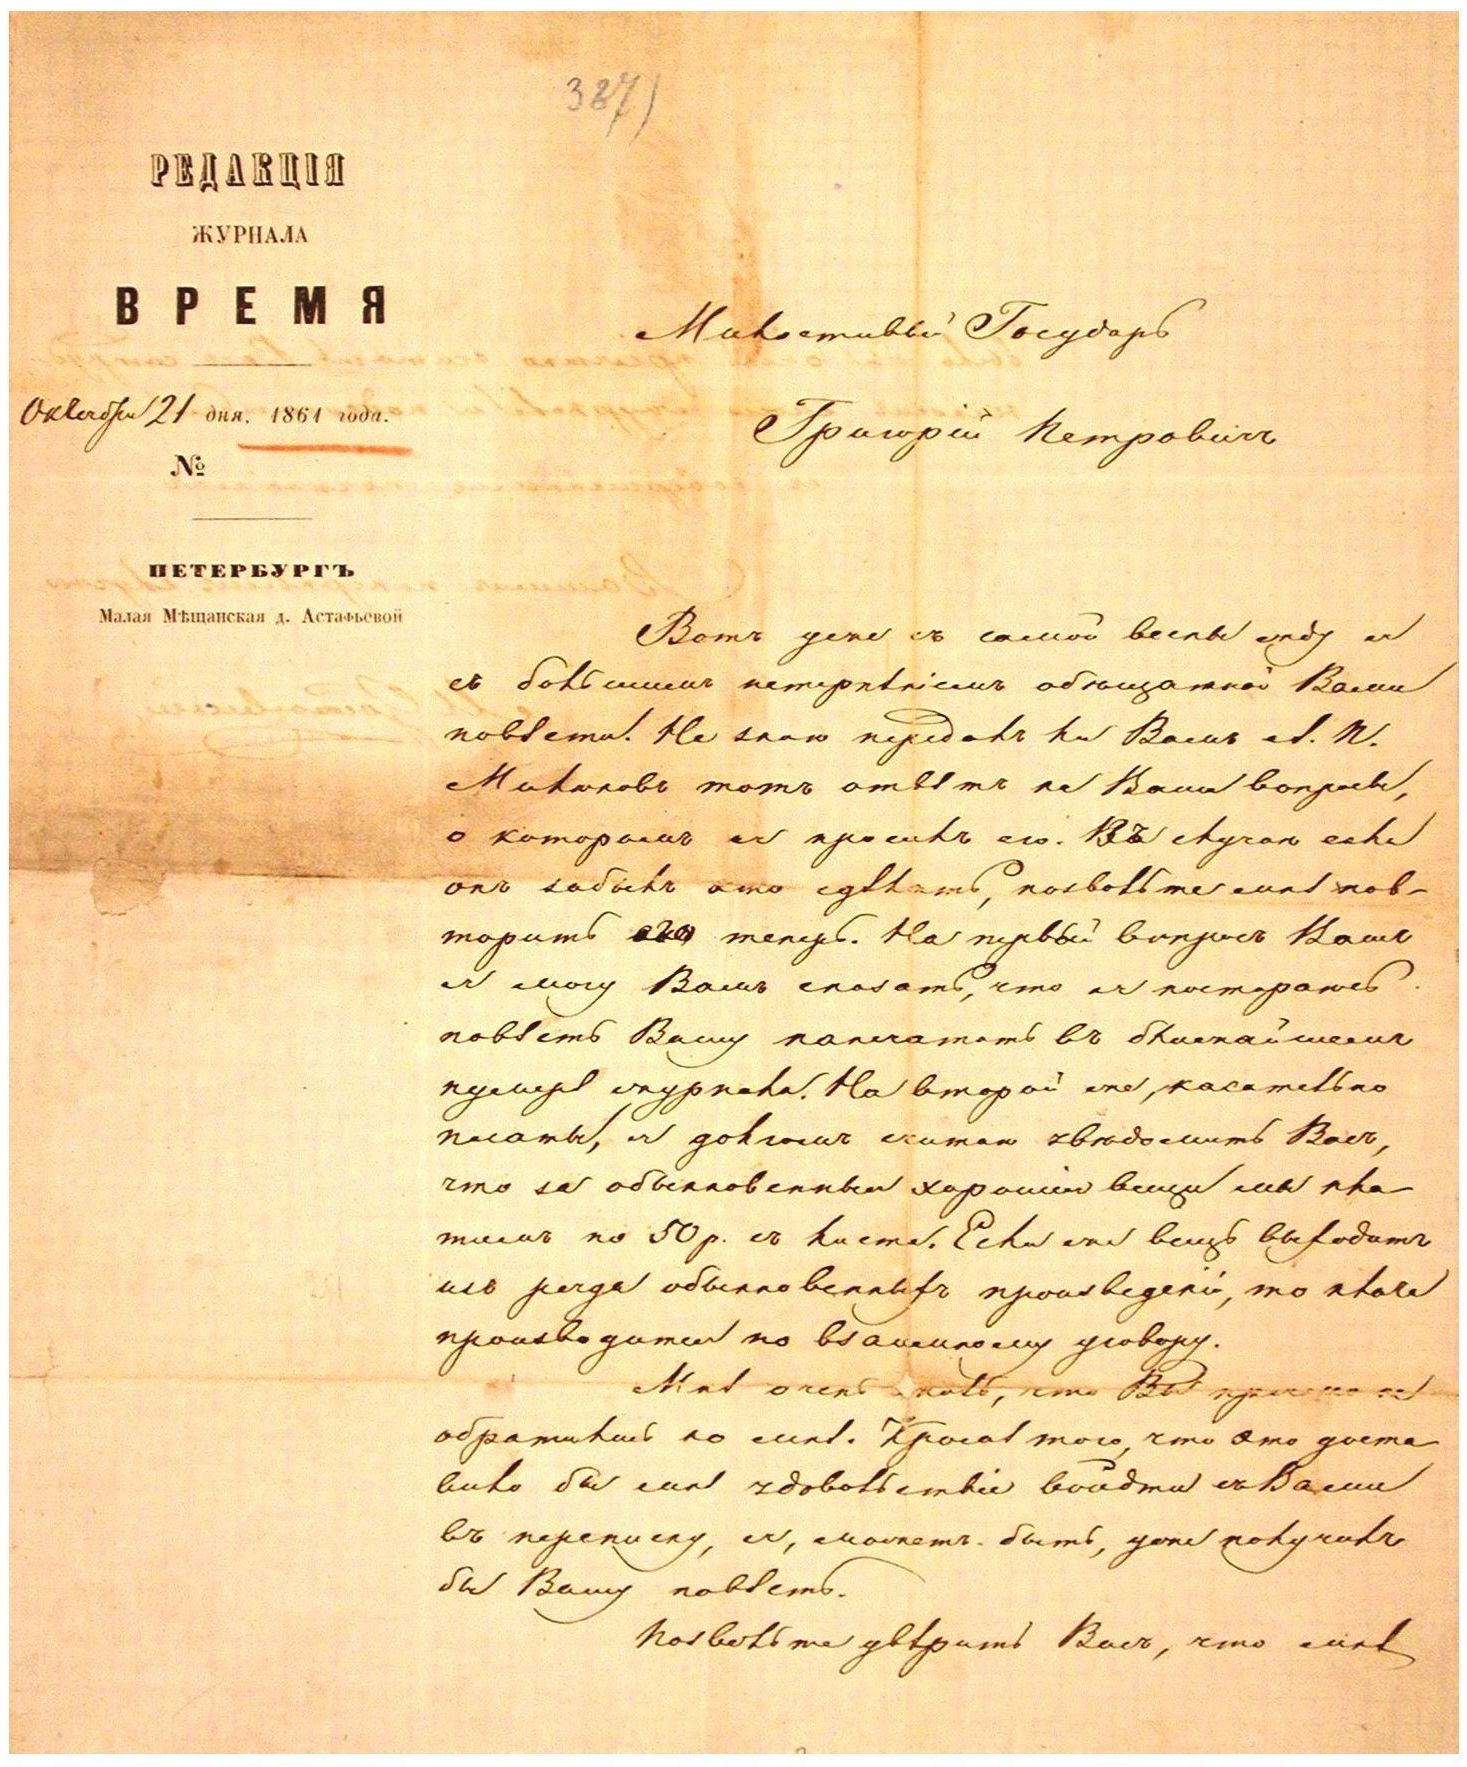 387)
РЕДАКЦІЯ
ЖУРНАЛА
ВРЕМЯ
Октября 21 дня. 1861 года.
№
ПЕТЕРБУРГЪ
Малая Мѣщанская д. Астафьевой
Милостивый Государь
Григорій Петровичъ
Вотъ уже съ самой весны жду я
съ большимъ нетерпѣніемъ обѣщанной Вами
повѣсти. Не знаю передалъ ли Вамъ А. П.
Милюковъ тотъ отвѣтъ на Ваши вопросы,
о которомъ я просилъ его. Въ случаѣ если
онъ забылъ это сдѣлать, позвольте мнѣ пов-
торить его теперь. На первый вопросъ Вашъ
я могу Вамъ сказать, что я постараюсь
повѣсть Вашу напечатать въ ближайшемъ
нумерѣ журнала. На второй же, касательно
платы, я долгомъ считаю увѣдомить Васъ,
что за обыкновенныя хорошія вещи мы пла
тимъ по 50 р. съ листа. Если же вещь выходитъ
изъ ряда обыкновенныхъ произведеній, то плата
производится по взаимному уговору.
Мнѣ очень жаль, что Вы прямо не
обратились ко мнѣ. Кромѣ того, что это доста
вило бы мнѣ удовольствіе войдти съ Вами
въ переписку, я, можетъ быть, уже получилъ
бы Вашу повѣсть.
Позвольте увѣрить Васъ, что мнѣ